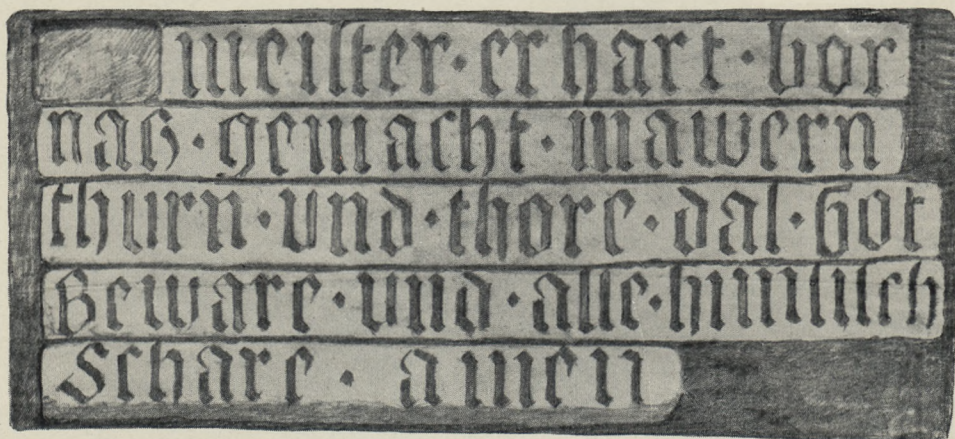 meister · erhart · bor
nag · gemacht · mawern
thurn · vnd · thore · das · Got
Beware · und · alle · himlisch
Schare · amen